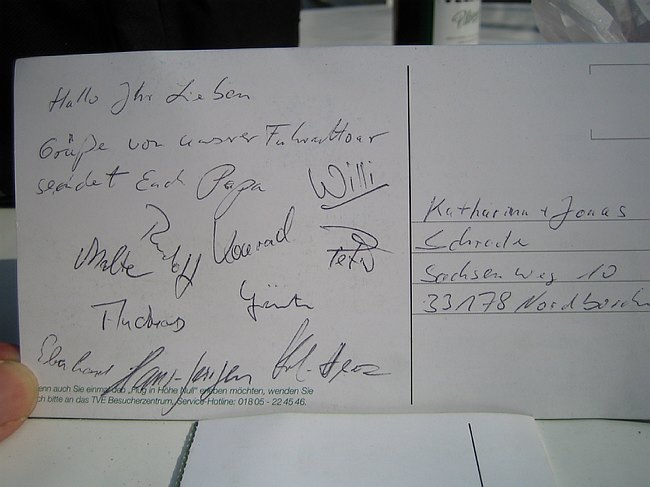 Hallo Ihr Lieben
Grüße von unserer Fahrradtour
sendet Euch Papa Willi
Malte Rudolf Konrad Peter
Thomas Günter
Eberhard Hans-Jürgen Karl-Heinz
enn auch Sie einmal den „Flug in Höhe Null" erleben möchten, wenden Sie
ch bitte an das TVE Besucherzentrum, Service-Hotline: 018 05 - 22 45 46.
Katharina + Jonas
Schrade
Sachsenweg 10
33178 Nordborchen